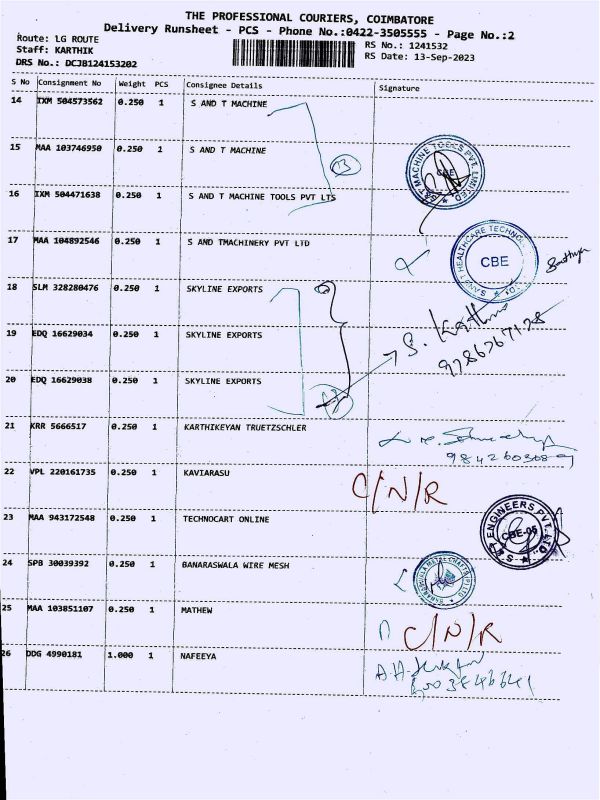 THE PROFESSIONAL COURIERS, COIMBATORE
Delivery Runsheet - PCS - Phone No.:0422-3505555 - Page No.:2
Route: LG ROUTE RS No.: 1241532
Staff: KARTHIK RS Date: 13-Sep-2023
DRS No.: DCJB124153202
S No Consignment No Weight PCS Consignee Details Signature
14 IXM 504573562 0.250 1 S AND T MACHINE
15 MAA 103746950 0.250 1 S AND T MACHINE
16 IXM 504471638 0.250 1 S AND T MACHINE TOOLS PVT LTS
17 MAA 104892546 0.250 1 S AND TMACHINERY PVT LTD
CBE
18 SLM 328280476 0.250 1 SKYLINE EXPORTS
19 EDQ 16629034 0.250 1 SKYLINE EXPORTS
9786767128
20 EDQ 16629038 0.250 1 SKYLINE EXPORTS
21 KRR 5666517 0.250 1 KARTHIKEYAN TRUETZSCHLER
22 VPL 220161735 0.250 1 KAVIARASU C/N/R
23 MAA 943172548 0.250 1 TECHNOCART ONLINE
CBE-06
24 SPB 30039392 0.250 1 BANARASWALA WIRE MESH
25 MAA 103851107 0.250 1 MATHEW C/N/R
26 DDG 4990181 1.000 1 NAFEEYA